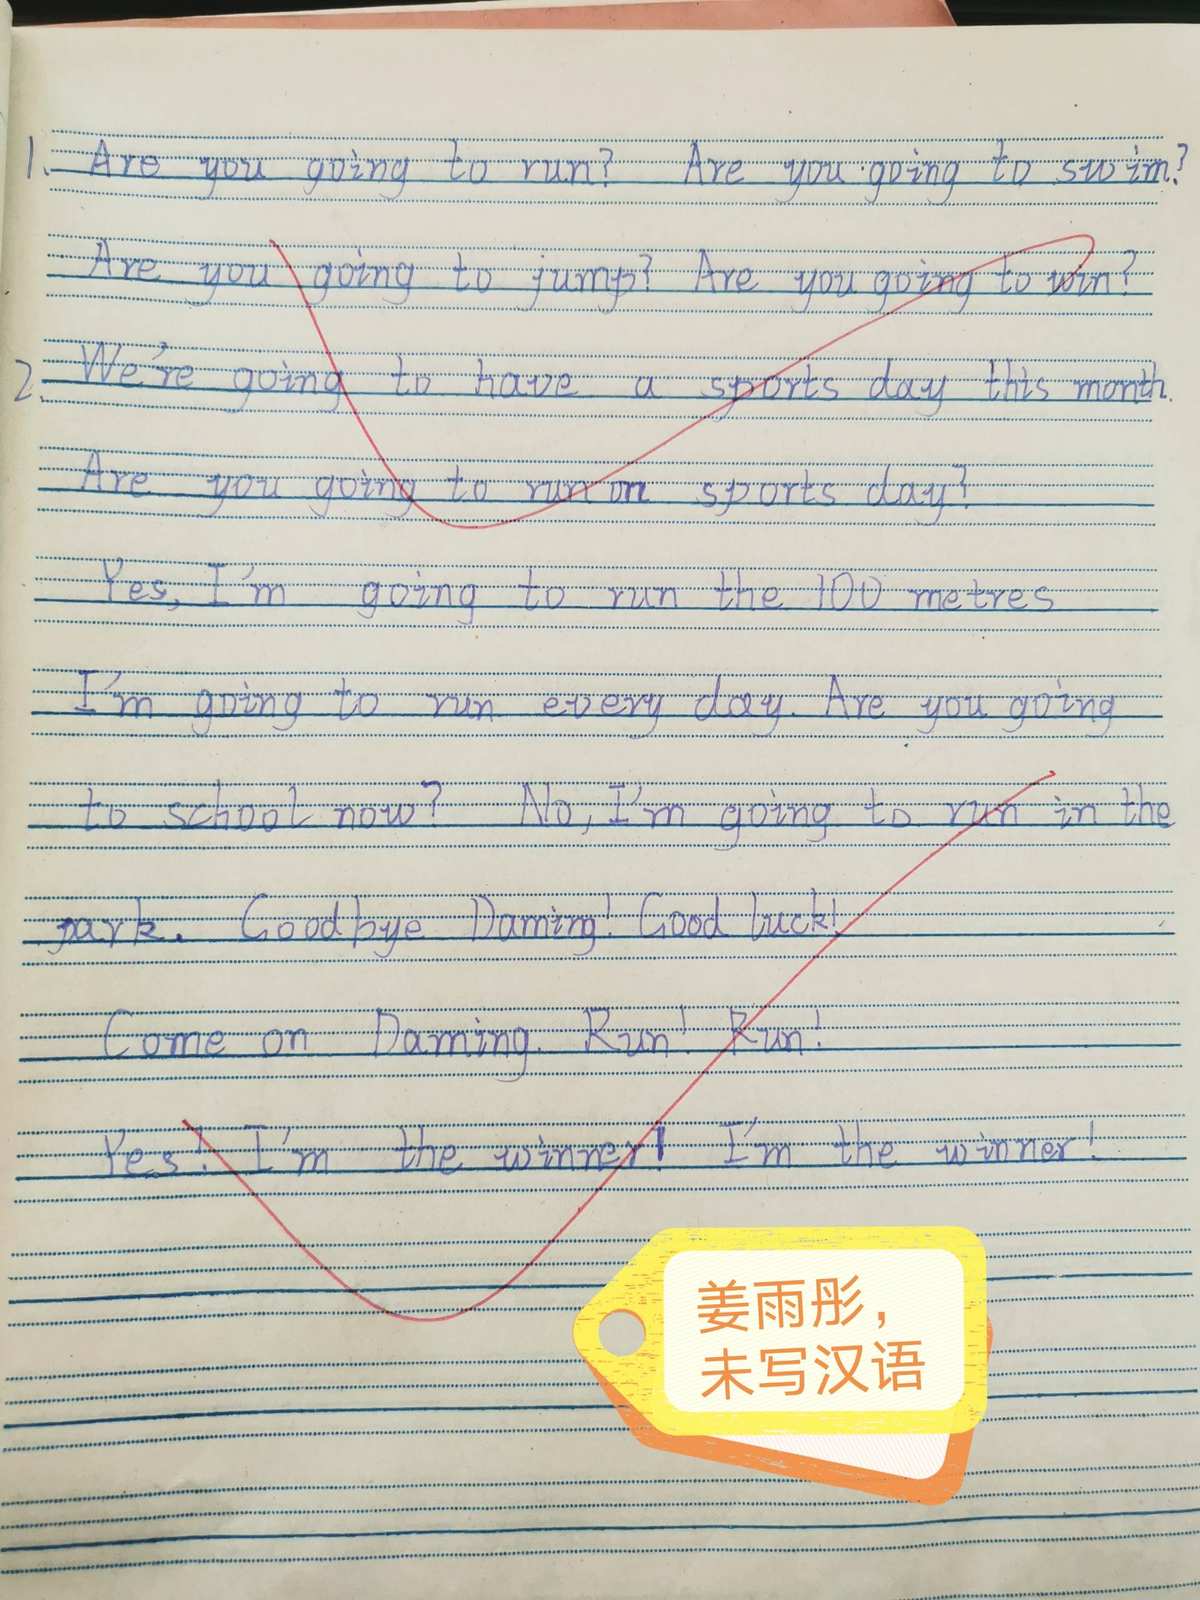 1. Are you going to run? Are you going to swim?
Are you going to jump? Are you going to win?
2. We're going to have a sports day this month.
Are you going to run on sports day?
Yes, I'm going to run the 100 metres
I'm going to run every day. Are you going
to school now? No, I'm going to run in the
park. Goodbye Daming! Good luck!
Come on Daming. Run! Run!
Yes! I'm the winner! I'm the winner!
姜雨彤，
未写汉语